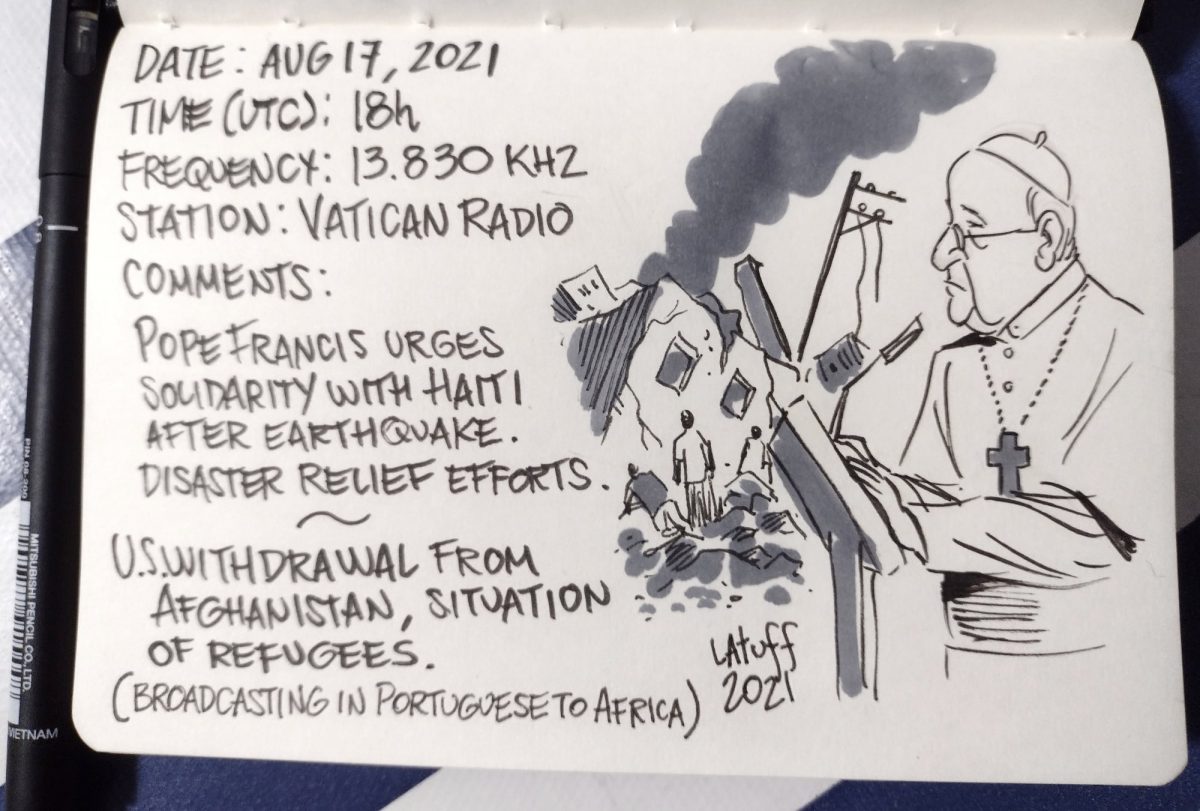 DATE: AUG 17, 2021
TIME (UTC): 18h
FREQUENCY: 13.830 KHZ
STATION: VATICAN RADIO
COMMENTS:
POPE FRANCIS URGES
SOLIDARITY WITH HAITI
AFTER EARTHQUAKE.
DISASTER RELIEF EFFORTS.
~
U.S. WITHDRAWAL FROM
AFGHANISTAN, SITUATION
OF REFUGEES.
(BROADCASTING IN PORTUGUESE TO AFRICA)
LATUFF
2021
MITSUBISHI PENCIL CO., LTD.
VIETNAM